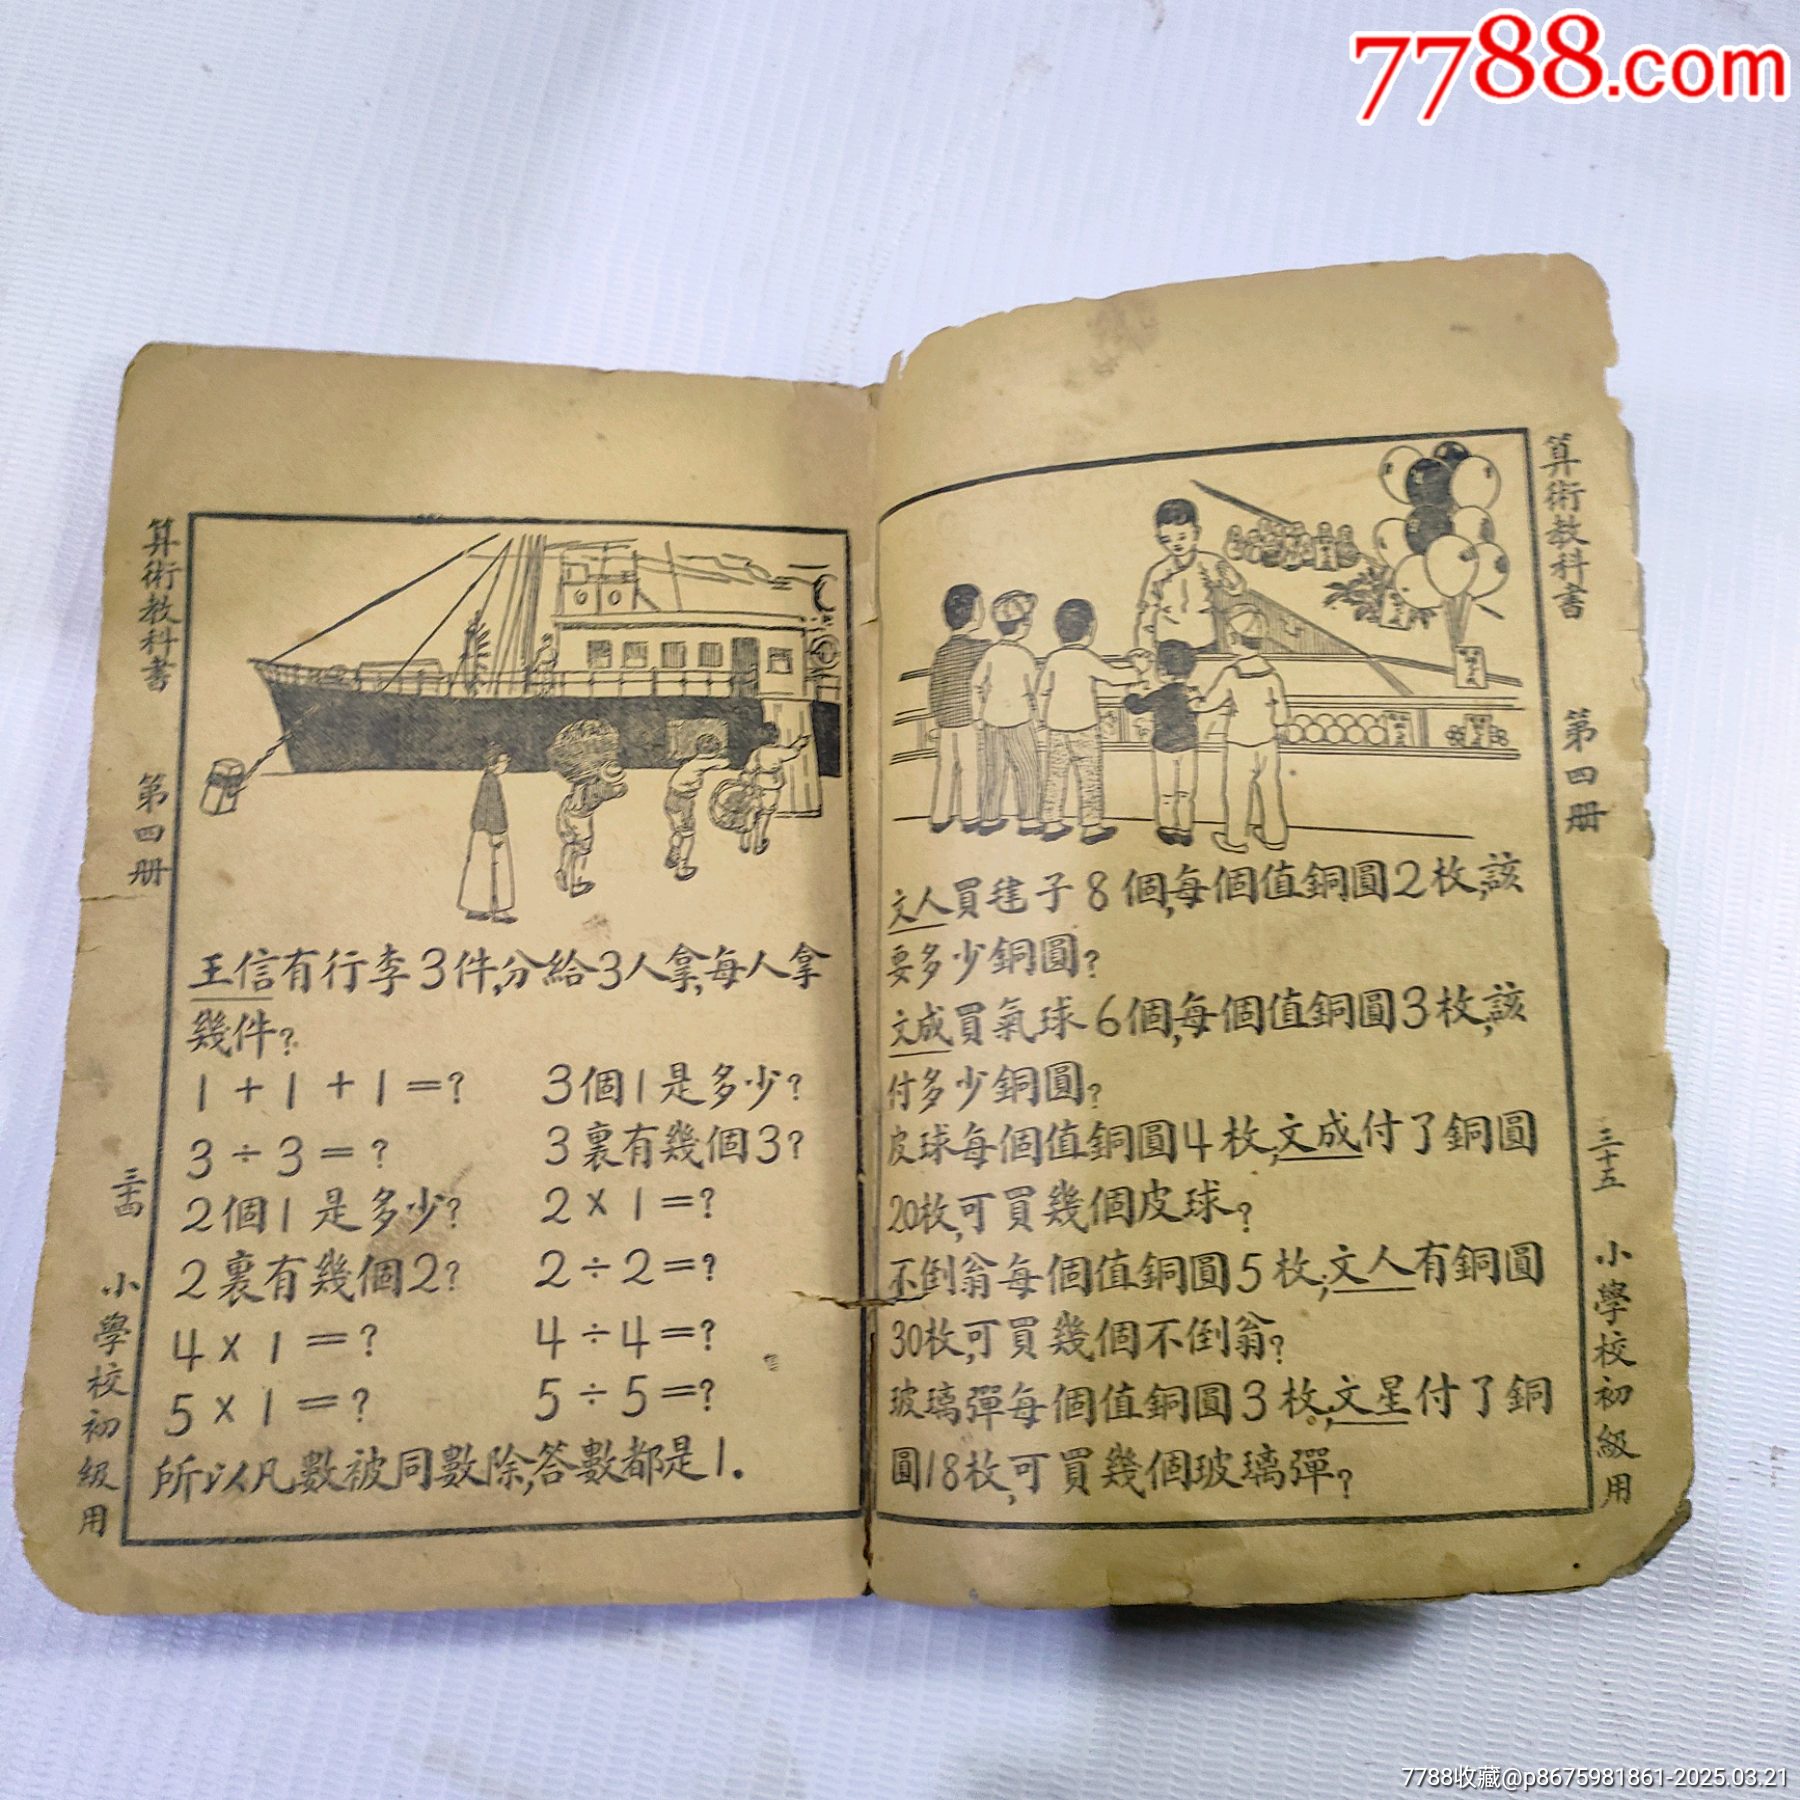 7788.com
算術教科書
第四册
三十四
小學校初級用
王信有行李3件,分給3人拿,每人拿
幾件?
1+1+1=? 3個1是多少?
3÷3=? 3裏有幾個3?
2個1是多少? 2×1=?
2裏有幾個2? 2÷2=?
4×1=? 4÷4=?
5×1=? 5÷5=?
所以凡數被同數除,答數都是1.
算術教科書
第四册
三十五
小學校初級用
文人買毽子8個,每個值銅圓2枚,該
要多少銅圓?
文成買氣球6個,每個值銅圓3枚,該
付多少銅圓?
皮球每個值銅圓4枚,文成付了銅圓
20枚,可買幾個皮球?
不倒翁每個值銅圓5枚,文人有銅圓
30枚,可買幾個不倒翁?
玻璃彈每個值銅圓3枚,文星付了銅
圓18枚,可買幾個玻璃彈?
7788收藏@p8675981861-2025.03.21